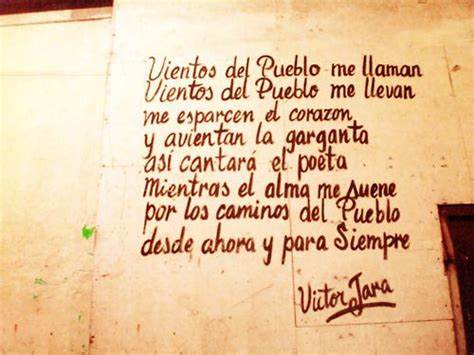 Vientos del Pueblo me llaman
Vientos del Pueblo me llevan
me esparcen el corazon
y avientan la garganta
así cantará el poeta
Mientras el alma me suene
por los caminos del Pueblo
desde ahora y para Siempre
Victor Jara